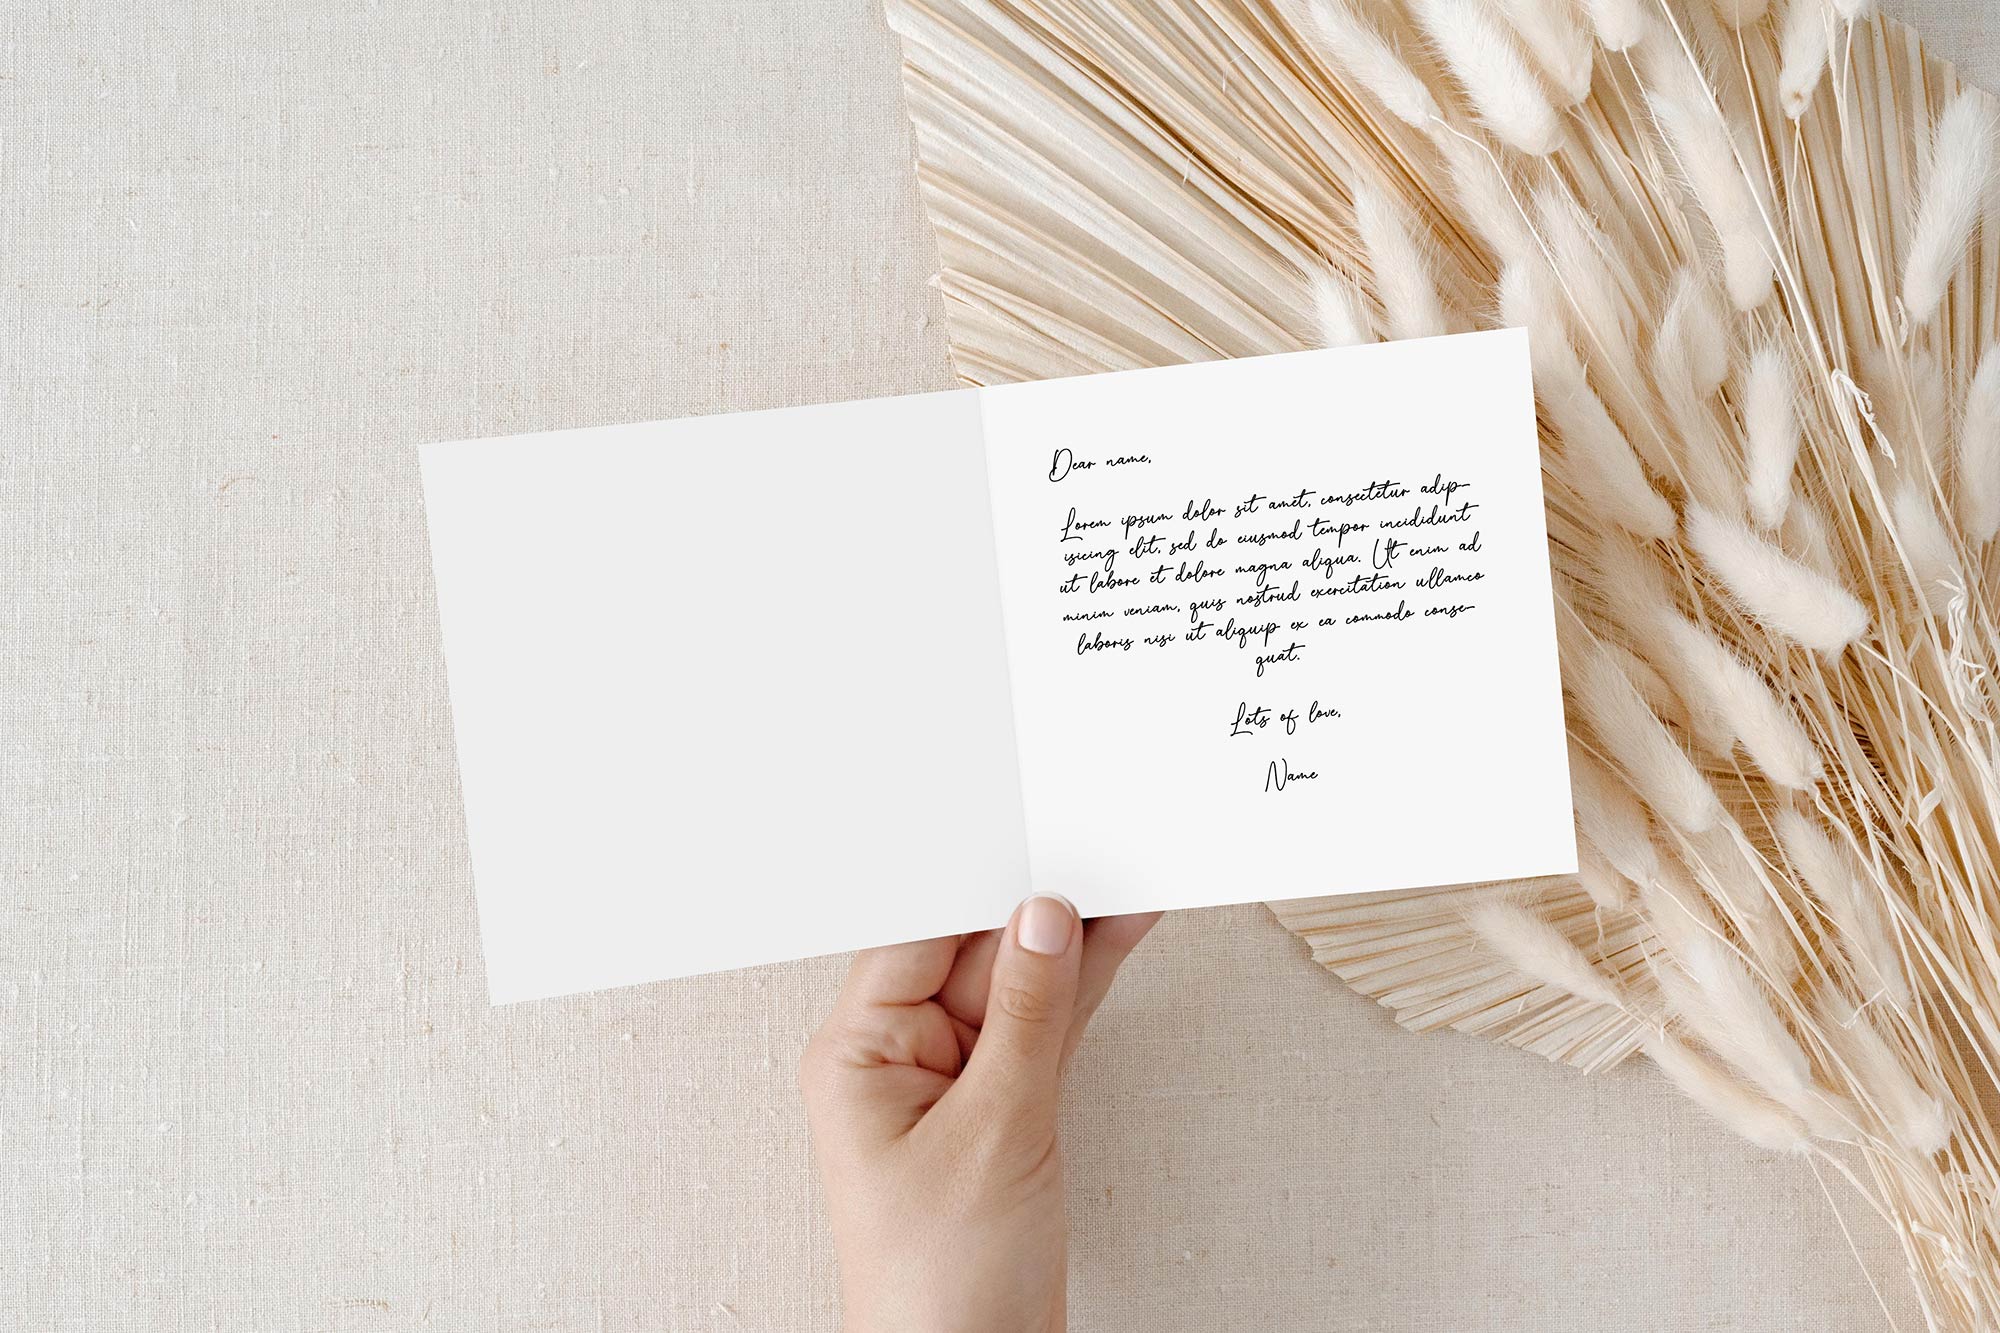 Dear name,
Lorem ipsum dolor sit amet, consectetur adip-
isicing elit, sed do eiusmod tempor incididunt
ut labore et dolore magna aliqua. Ut enim ad
minim veniam, quis nostrud exercitation ullamco
laboris nisi ut aliquip ex ea commodo conse-
quat.
Lots of love,
Name